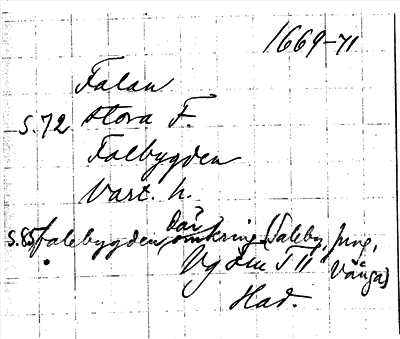 1669-71
Falan
s.72 Stora F.
Falbygden
Vart. h.
s.85 Falebygden, Där omkring (Saleby, Jung,
Vånga)
Had.